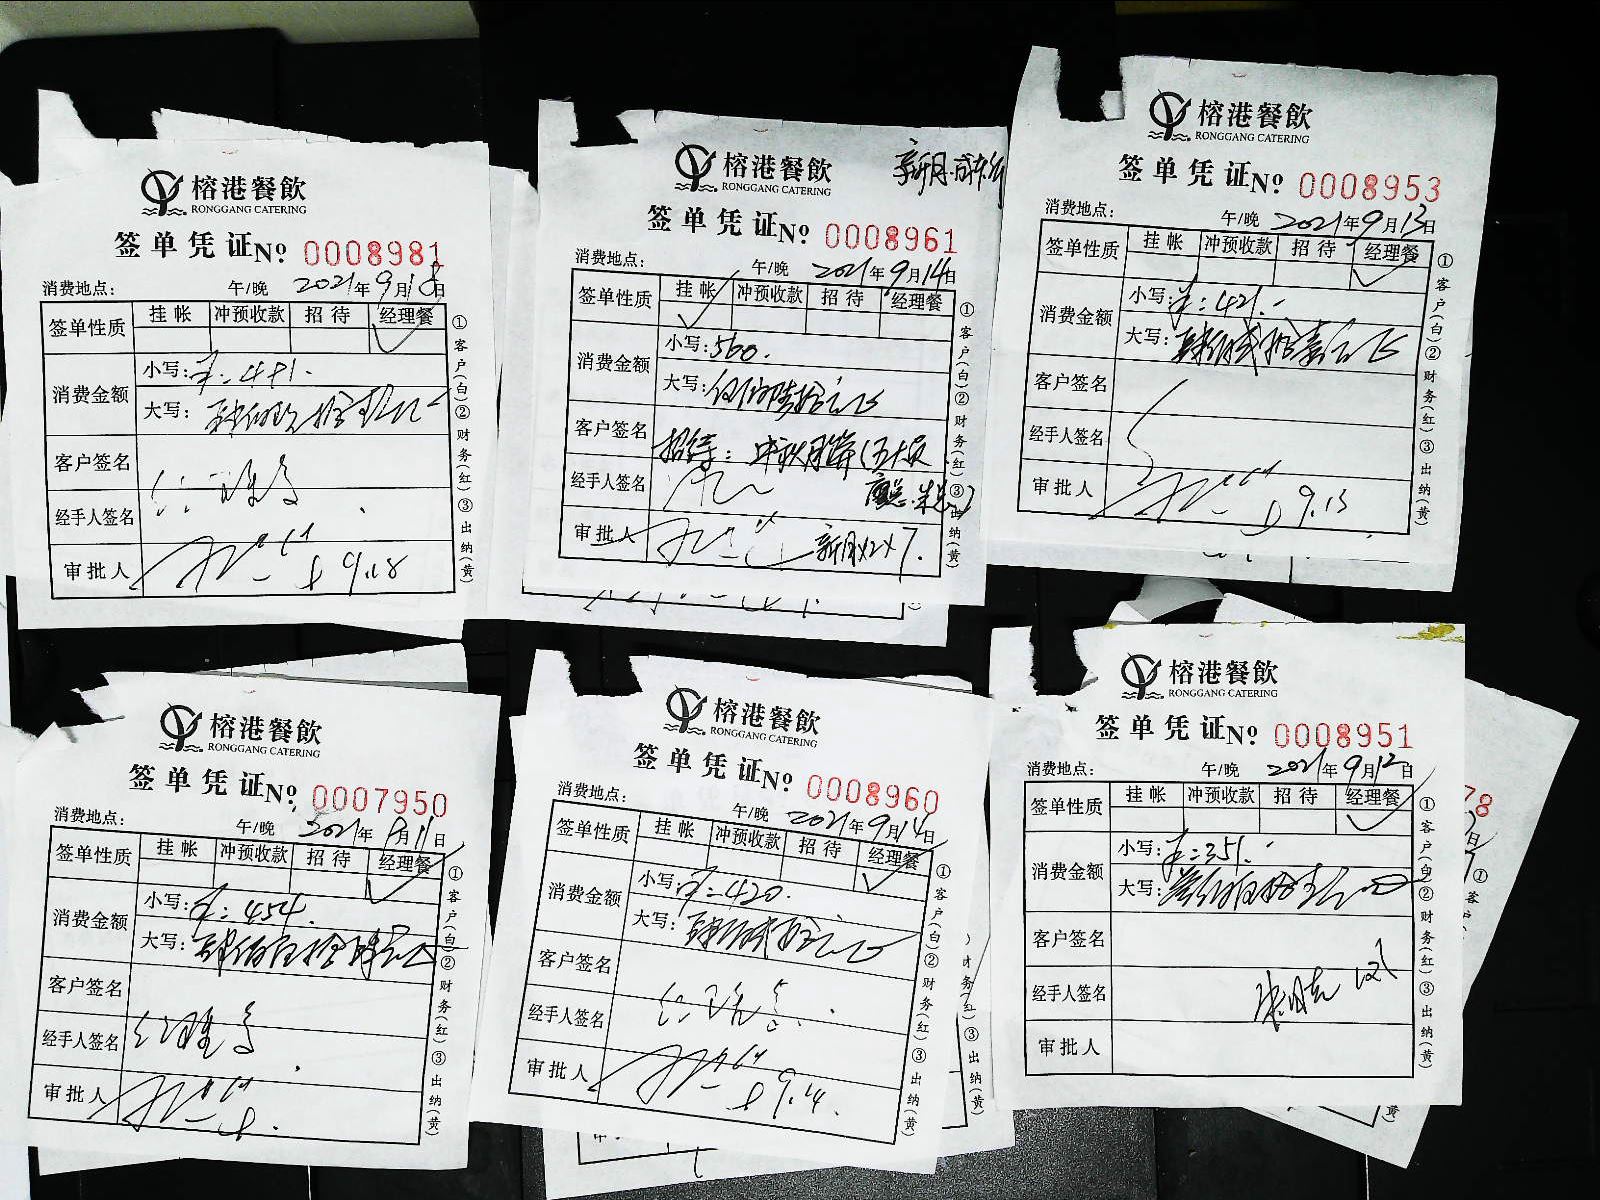 榕港餐飲
RONGGANG CATERING
签单凭证 № 0008981
消费地点: 午/晚 2021年9月18日
签单性质 挂帐 冲预收款 招待 经理餐
消费金额
小写:¥:481.
大写:
客户签名
经手人签名
审批人 9.18
①客户(白)②财务(红)③出纳(黄)
新月.
榕港餐飲
RONGGANG CATERING
签单凭证 № 0008961
消费地点: 午/晚 2021年9月14日
签单性质 挂帐 冲预收款 招待 经理餐
消费金额
小写:560.
大写:伍佰陆拾元正
客户签名 招待:中秋月饼
经手人签名
审批人 新月
①客户(白)②财务(红)③出纳(黄)
榕港餐飲
RONGGANG CATERING
签单凭证 № 0008953
消费地点: 午/晚 2021年9月13日
签单性质 挂帐 冲预收款 招待 经理餐
消费金额
小写:¥:421.
大写:肆佰贰拾壹元正
客户签名
经手人签名
审批人 9.13
①客户(白)②财务(红)③出纳(黄)
榕港餐飲
RONGGANG CATERING
签单凭证 № 0007950
消费地点: 午/晚 2021年9月11日
签单性质 挂帐 冲预收款 招待 经理餐
消费金额
小写:¥:454.
大写:肆佰伍拾肆元正
客户签名
经手人签名
审批人
①客户(白)②财务(红)③出纳(黄)
榕港餐飲
RONGGANG CATERING
签单凭证 № 0008960
消费地点: 午/晚 2021年9月14日
签单性质 挂帐 冲预收款 招待 经理餐
消费金额
小写:¥:420.
大写:肆佰贰拾元正
客户签名
经手人签名
审批人 9.14.
①客户(白)②财务(红)③出纳(黄)
榕港餐飲
RONGGANG CATERING
签单凭证 № 0008951
消费地点: 午/晚 2021年9月12日
签单性质 挂帐 冲预收款 招待 经理餐
消费金额
小写:¥:351.
大写:叁佰伍拾壹元
客户签名
经手人签名
审批人
①客户(白)②财务(红)③出纳(黄)
78